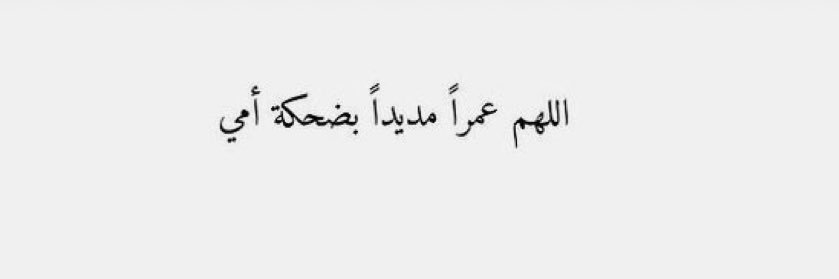 اللهم عمراً مديداً بضحكة أمي